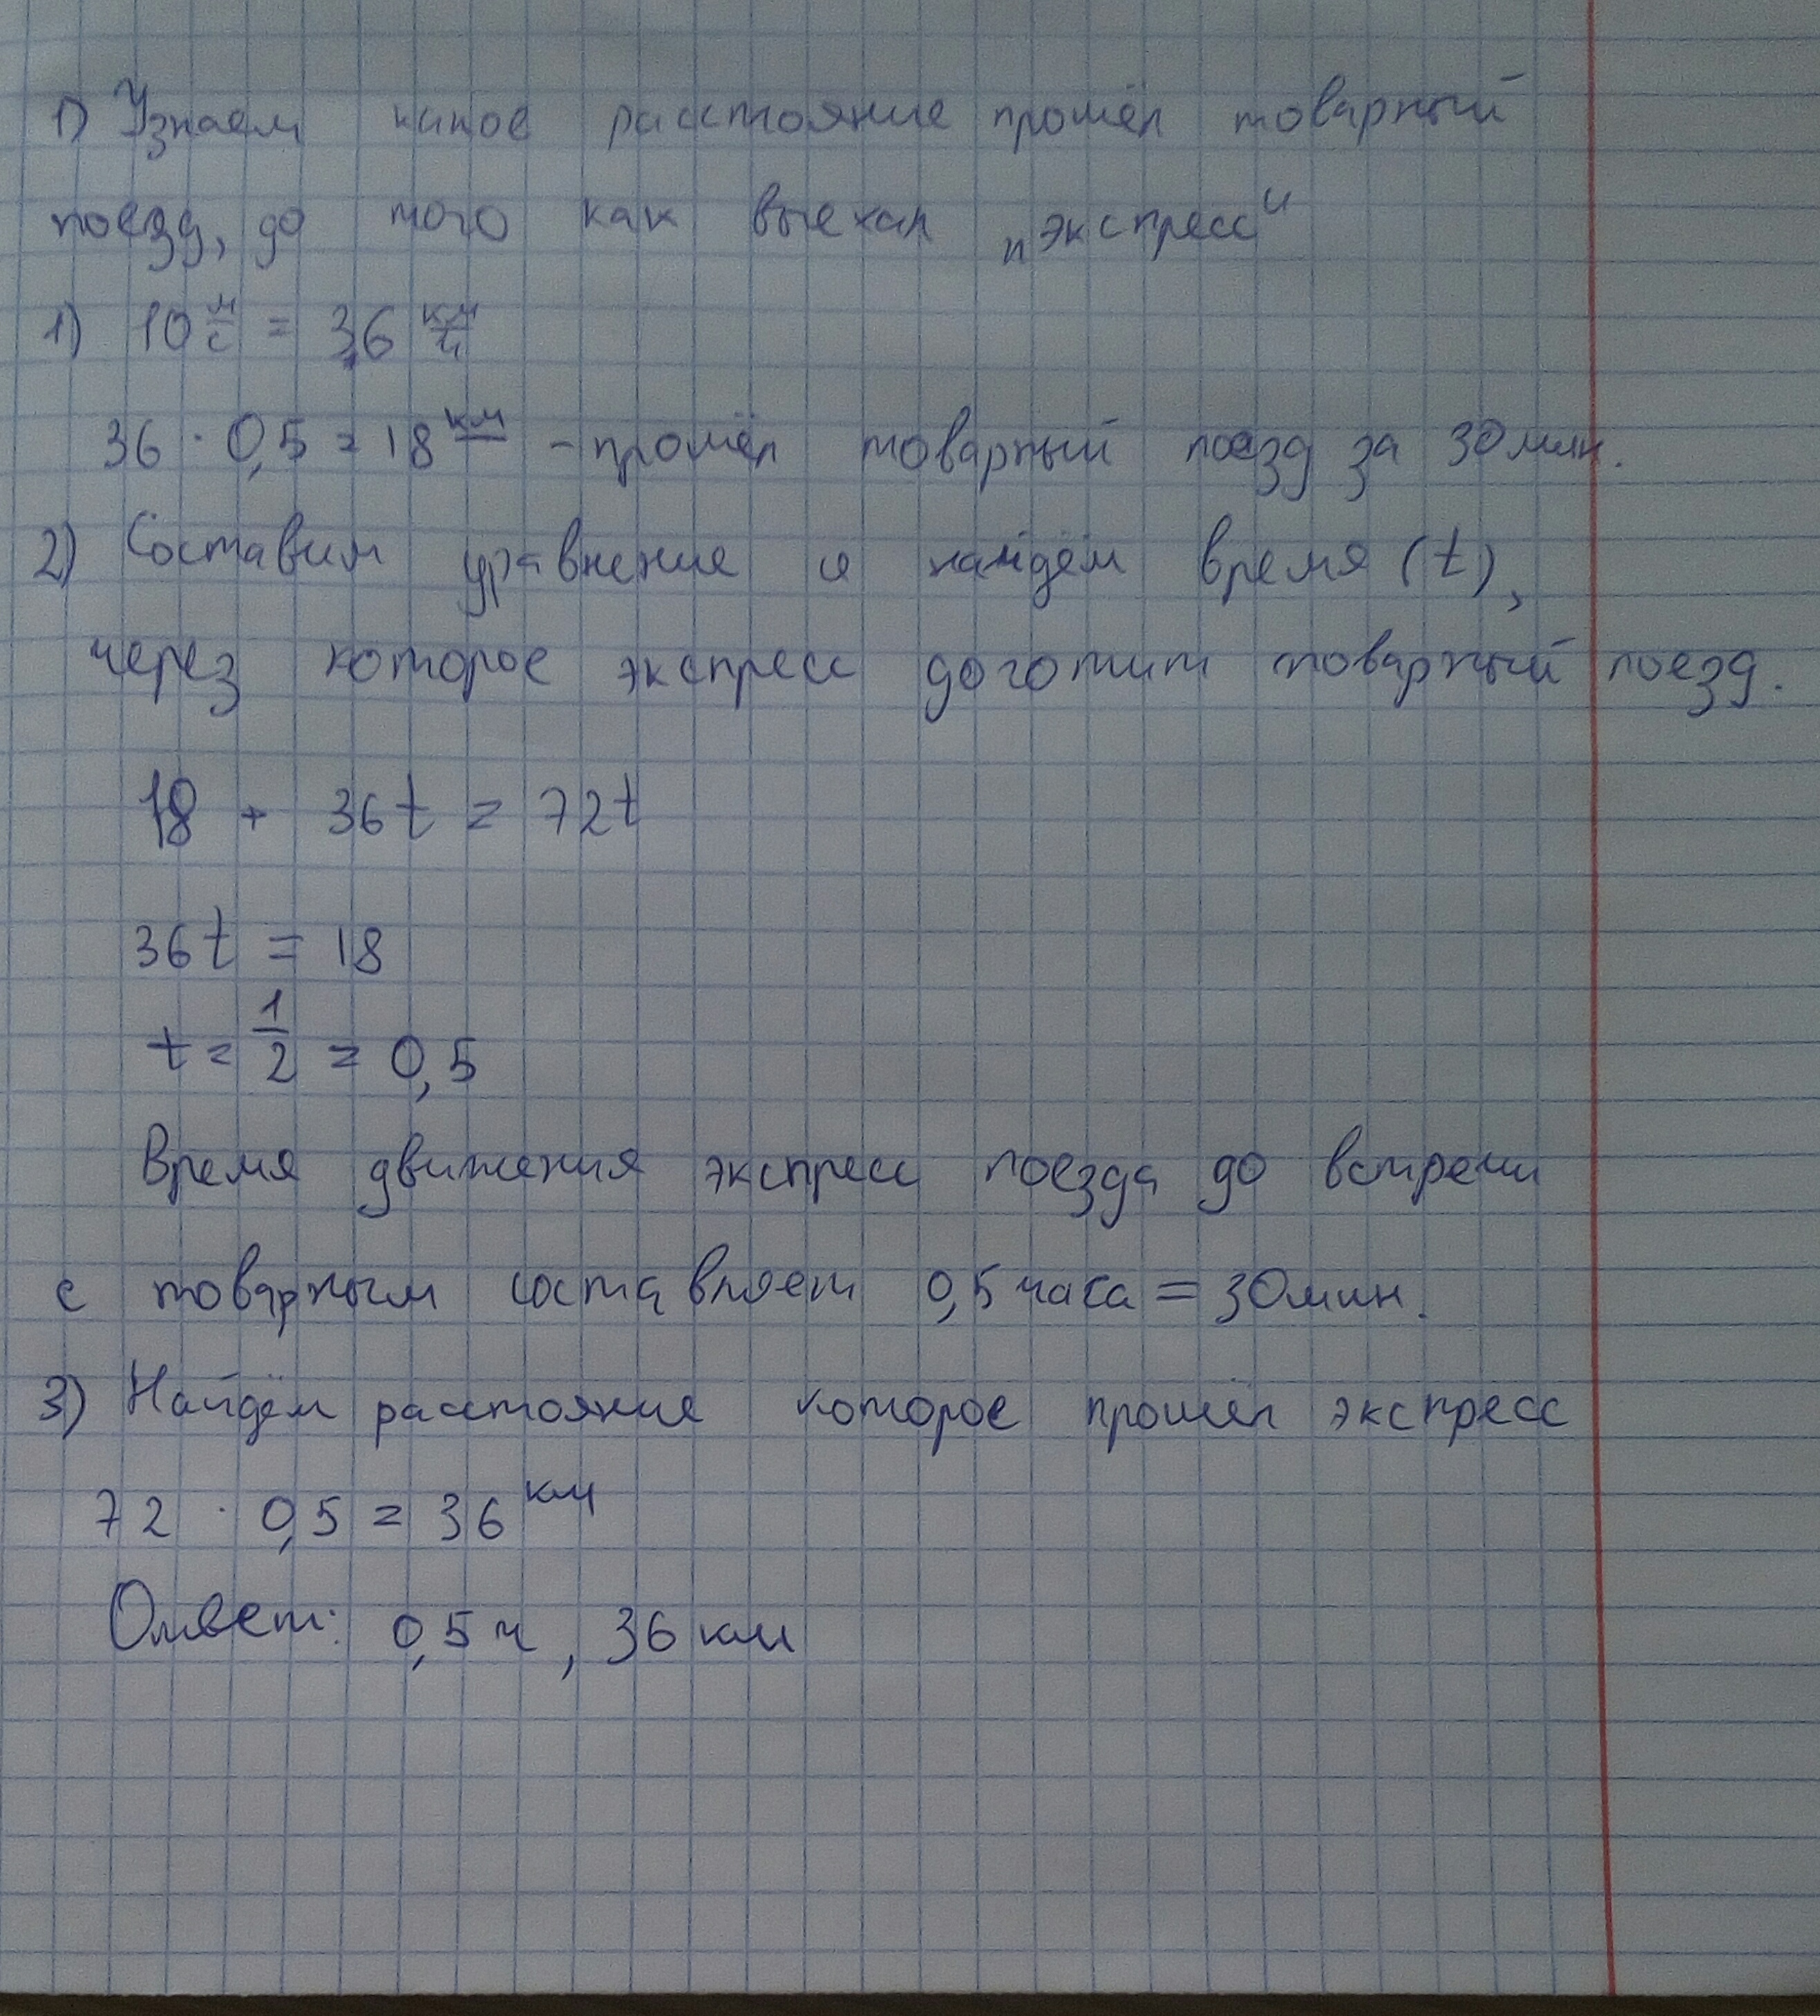 1) Узнаем какое расстояние прошёл товарный
поезд, до того как выехал „экспресс"
1) 10 м/с = 36 км/ч
36 · 0,5 = 18 км - прошёл товарный поезд за 30 мин.
2) Составим уравнение и найдём время (t),
через которое экспресс догонит товарный поезд.
18 + 36t = 72t
36t = 18
t = 1/2 = 0,5
Время движения экспресс поезда до встречи
с товарным составляет 0,5 часа = 30 мин.
3) Найдём расстояние которое прошёл экспресс
72 · 0,5 = 36 км
Ответ: 0,5 ч, 36 км